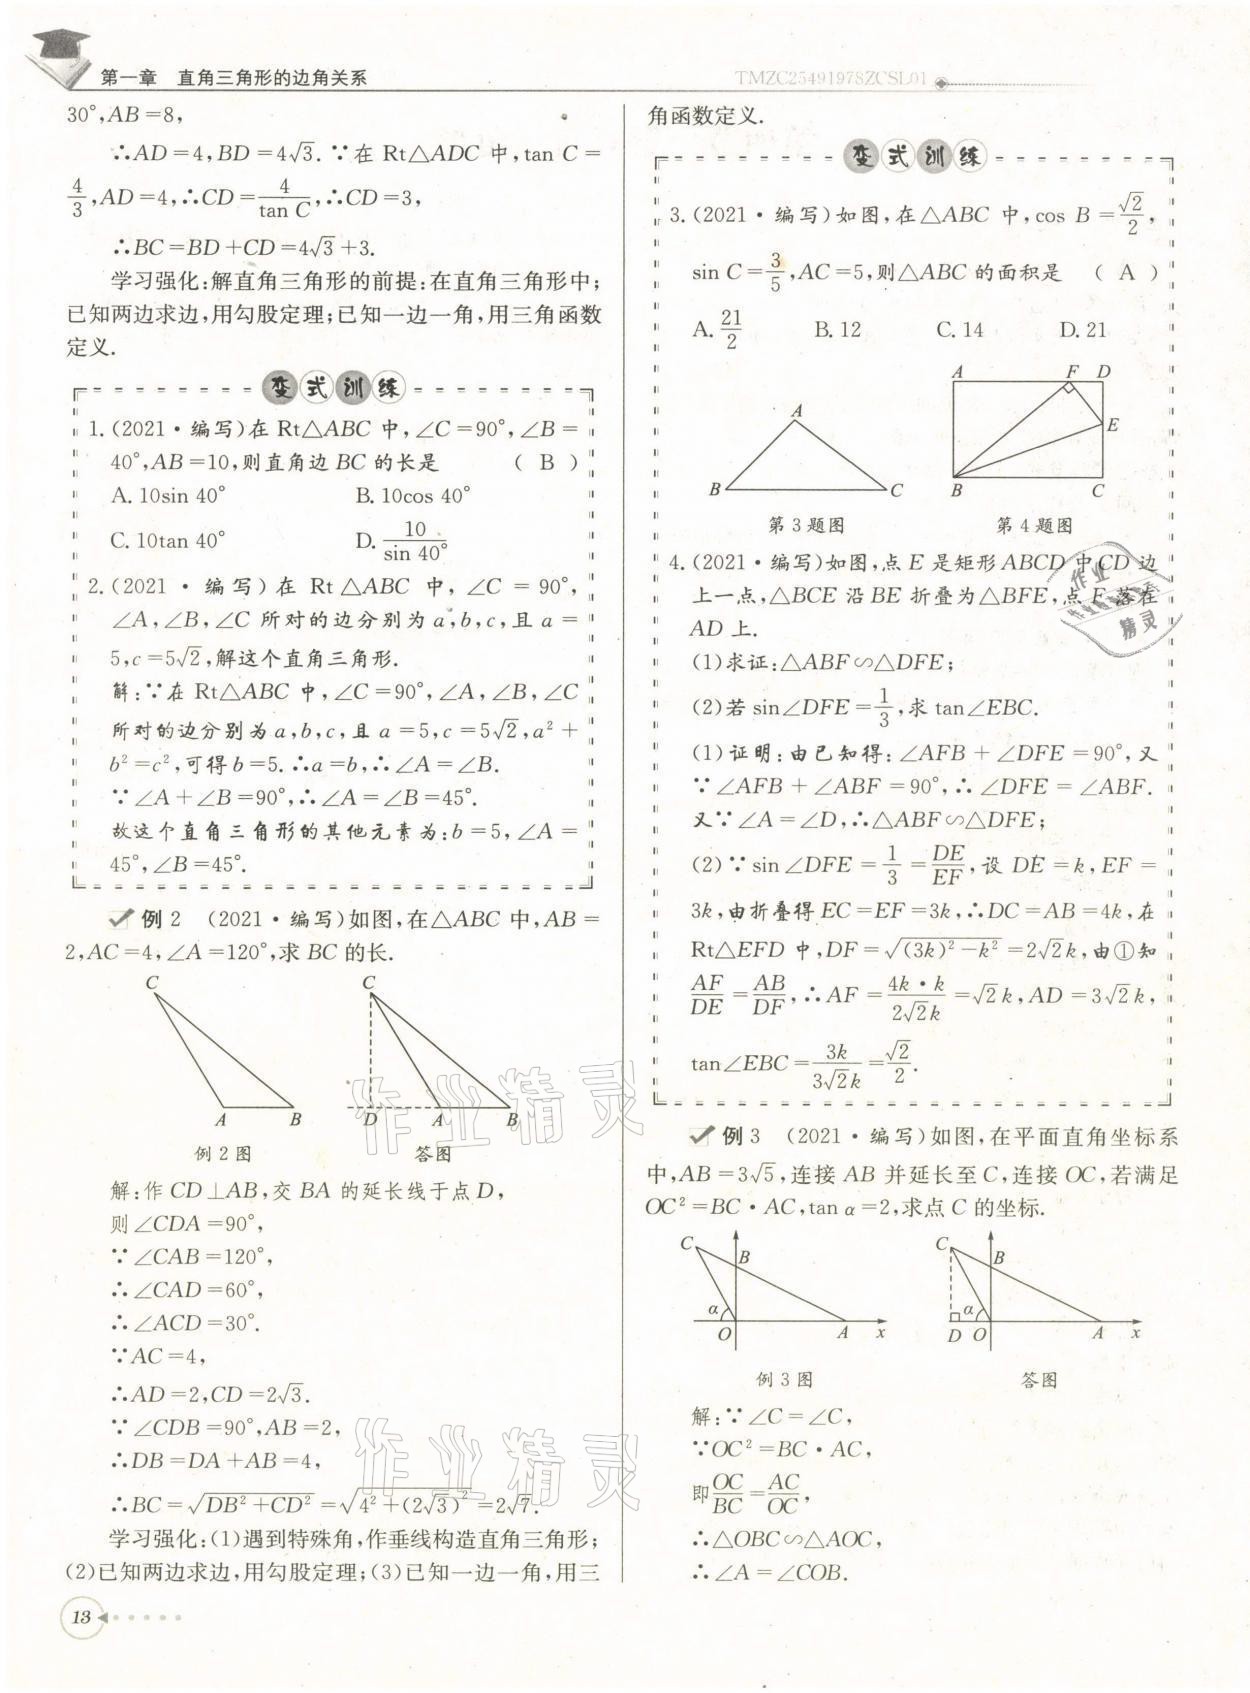 第一章　直角三角形的边角关系
TMZC25491978ZCSL01
30°,AB=8,
∴AD=4,BD=4√3.∵在Rt△ADC中,tan C=
4/3,AD=4,∴CD=4/tan C,∴CD=3,
∴BC=BD+CD=4√3+3.
学习强化:解直角三角形的前提:在直角三角形中;
已知两边求边,用勾股定理;已知一边一角,用三角函数
定义.
变式训练
1.(2021·编写)在Rt△ABC中,∠C=90°,∠B=
40°,AB=10,则直角边BC的长是　(　B　)
A. 10sin 40°　B. 10cos 40°
C. 10tan 40°　D. 10/sin 40°
2.(2021·编写)在Rt△ABC中,∠C=90°,
∠A,∠B,∠C所对的边分别为a,b,c,且a=
5,c=5√2,解这个直角三角形.
解:∵在Rt△ABC中,∠C=90°,∠A,∠B,∠C
所对的边分别为a,b,c,且a=5,c=5√2,a²+
b²=c²,可得b=5.∴a=b,∴∠A=∠B.
∵∠A+∠B=90°,∴∠A=∠B=45°.
故这个直角三角形的其他元素为:b=5,∠A=
45°,∠B=45°.
例2　(2021·编写)如图,在△ABC中,AB=
2,AC=4,∠A=120°,求BC的长.
C　C
A　B　D　A　B
例2图　答图
解:作CD⊥AB,交BA的延长线于点D,
则∠CDA=90°,
∵∠CAB=120°,
∴∠CAD=60°,
∴∠ACD=30°.
∵AC=4,
∴AD=2,CD=2√3.
∵∠CDB=90°,AB=2,
∴DB=DA+AB=4,
∴BC=√(DB²+CD²)=√(4²+(2√3)²)=2√7.
学习强化:(1)遇到特殊角,作垂线构造直角三角形;
(2)已知两边求边,用勾股定理;(3)已知一边一角,用三
13
角函数定义.
变式训练
3.(2021·编写)如图,在△ABC中,cos B=√2/2,
sin C=3/5,AC=5,则△ABC的面积是　(　A　)
A. 21/2　B. 12　C. 14　D. 21
A　F　D
A　E
B　C　B　C
第3题图　第4题图
4.(2021·编写)如图,点E是矩形ABCD中CD边
上一点,△BCE沿BE折叠为△BFE,点F落在
AD上.
(1)求证:△ABF∽△DFE;
(2)若sin∠DFE=1/3,求tan∠EBC.
(1)证明:由已知得:∠AFB+∠DFE=90°,又
∵∠AFB+∠ABF=90°,∴∠DFE=∠ABF.
又∵∠A=∠D,∴△ABF∽△DFE;
(2)∵sin∠DFE=1/3=DE/EF,设DE=k,EF=
3k,由折叠得EC=EF=3k,∴DC=AB=4k,在
Rt△EFD中,DF=√((3k)²-k²)=2√2k,由①知
AF/DE=AB/DF,∴AF=4k·k/2√2k=√2k,AD=3√2k,
tan∠EBC=3k/3√2k=√2/2.
例3　(2021·编写)如图,在平面直角坐标系
中,AB=3√5,连接AB并延长至C,连接OC,若满足
OC²=BC·AC,tan α=2,求点C的坐标.
C　B　C　B
α　α
O　A　x　D　O　A　x
例3图　答图
解:∵∠C=∠C,
∵OC²=BC·AC,
即OC/BC=AC/OC,
∴△OBC∽△AOC,
∴∠A=∠COB.
作业精灵
作业精灵
作业
精灵